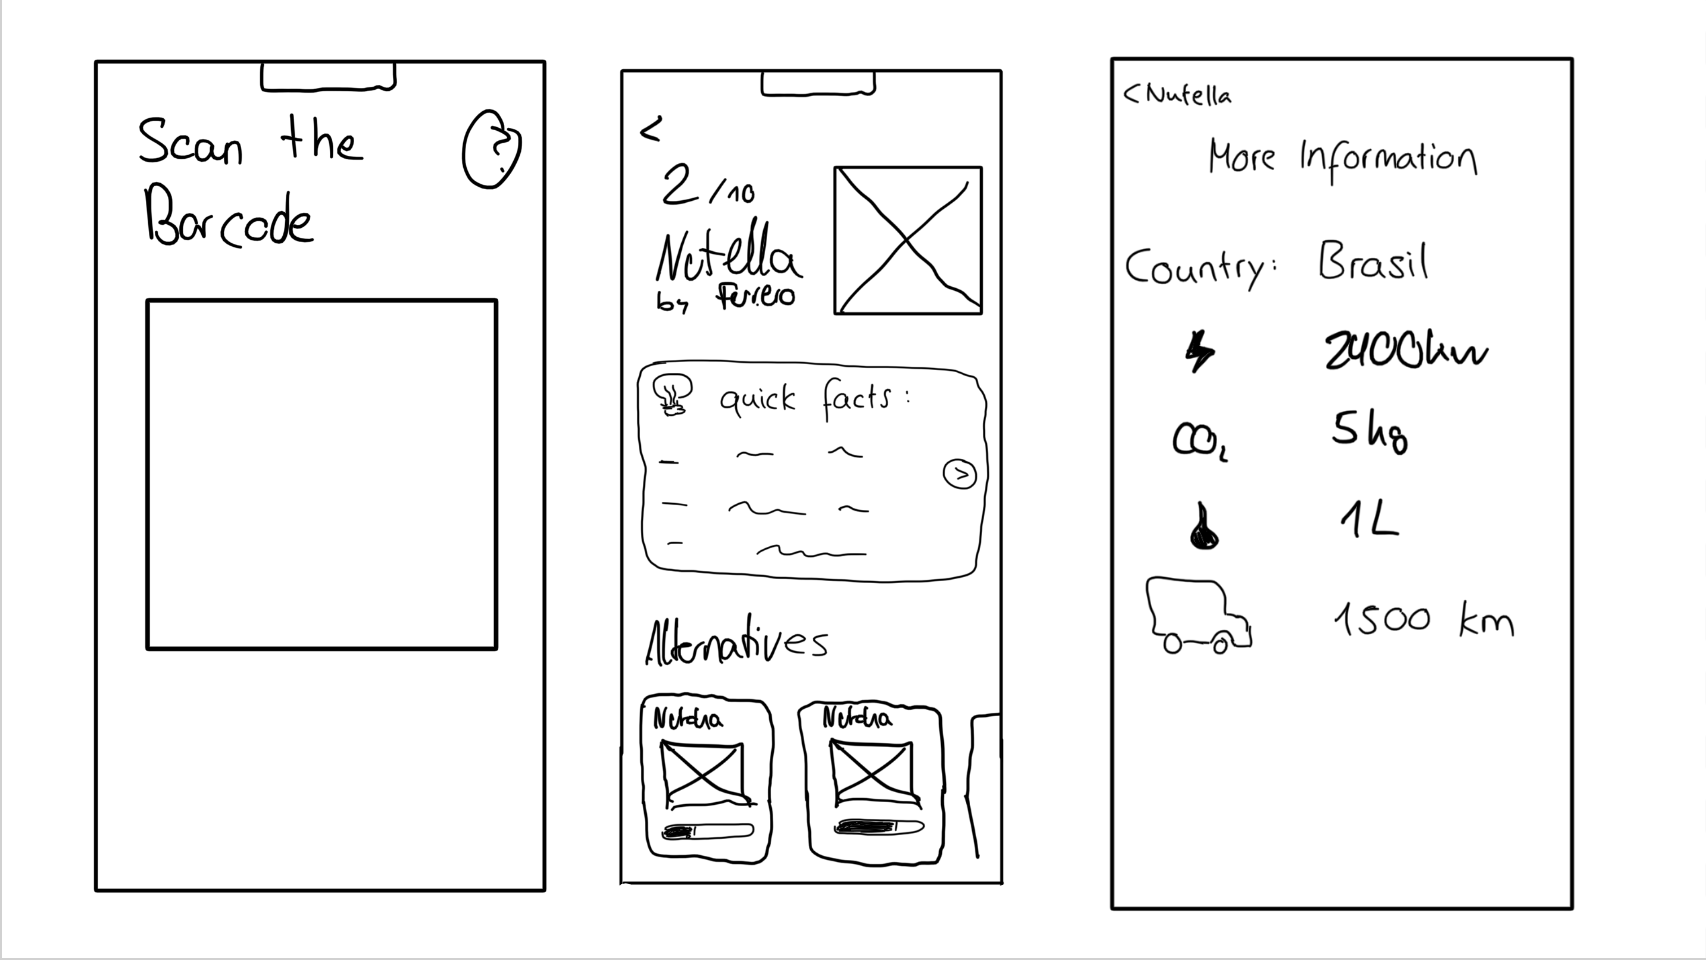 Scan the
Barcode
?
<
2/10
Nutella
by Ferrero
quick facts:
>
Alternatives
< Nutella
More Information
Country: Brasil
2400kw
CO₂ 5kg
1L
1500 km